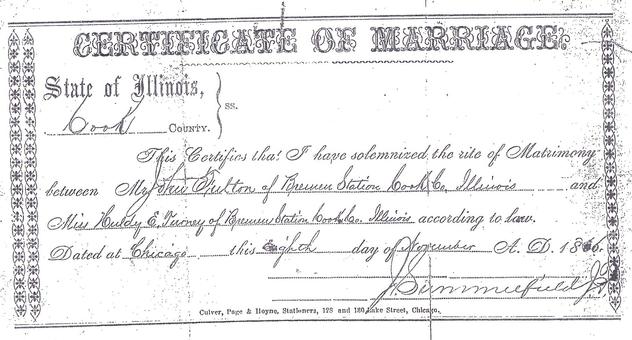 CERTIFICATE OF MARRIAGE.
State of Illinois,
Cook COUNTY. } ss.
This Certifies that I have solemnized the rite of Matrimony
between Mr John Fulton of Bremen Station Cook Co, Illinois and
Miss Huldy E. of Bremen Station Cook Co. Illinois according to law.
Dated at Chicago this Eighth day of November A. D. 18
J. Summerfield J.P.
Culver, Page & Hoyne, Stationers, 128 and 130 Lake Street, Chicago.